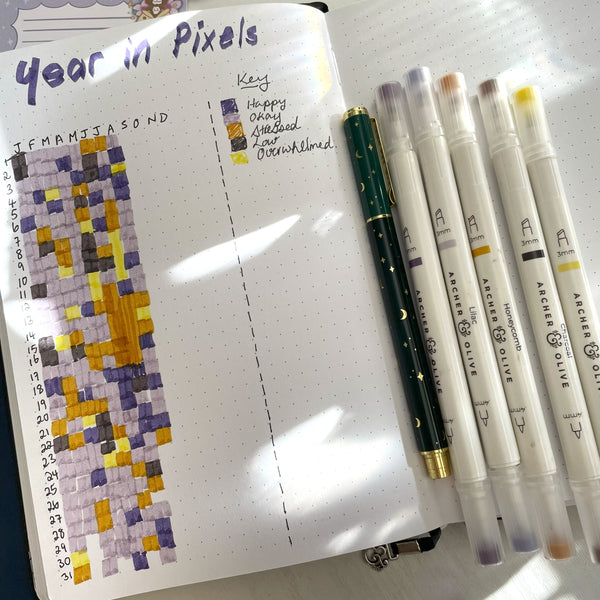 Year in Pixels
Key
Happy
Okay
Stressed
Low
Overwhelmed
J F M A M J J A S O N D
1
2
3
4
5
6
7
8
9
10
11
12
13
14
15
16
17
18
19
20
21
22
23
24
25
26
27
28
29
30
31
3mm
ARCHER & OLIVE
3mm
ARCHER & OLIVE
Lilac
3mm
ARCHER & OLIVE
Honeycomb
3mm
ARCHER & OLIVE
Charcoal
4mm
4mm
4mm